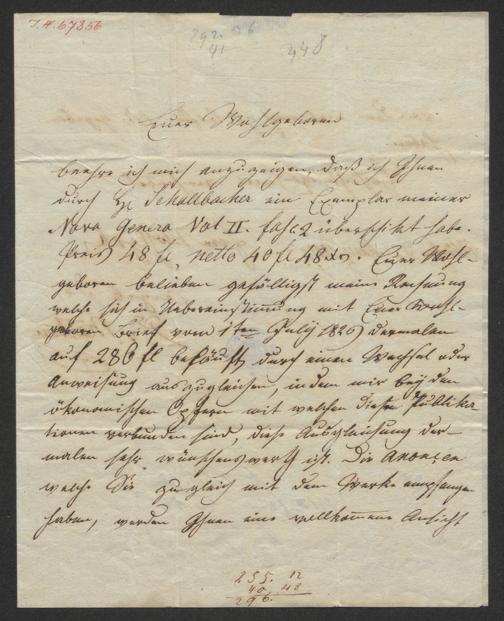 I.N. 67356
292. 96
41
448
Euer Wohlgeboren
beehre ich mich anzuzeigen, daß ich Ihnen
durch H. Schallbacher ein Exemplar meiner
Nova Genera Vol II. fasc 2 überschikt habe.
Preis 48 fl netto 40 fl 48 xr. Euer Wohl-
geboren belieben gefälligst meine Rechnung
welche sich in Uebereinstimmung mit Euer Wohl-
geboren Brief vom 1ten July 1826 dermalen
auf 286 fl beläuft, durch einen Wechsel oder
Anweisung auszugleichen, indem mir bey den
ökonomischen Opfern mit welchen diese Publika-
tionen verbunden sind, diese Ausgleichung der-
malen sehr wünschenswerth ist. Die Anonçen
welche Sie zugleich mit dem Werke empfangen
haben, werden Ihnen eine vollkommene Ansicht
255. 12
40. 48
296.